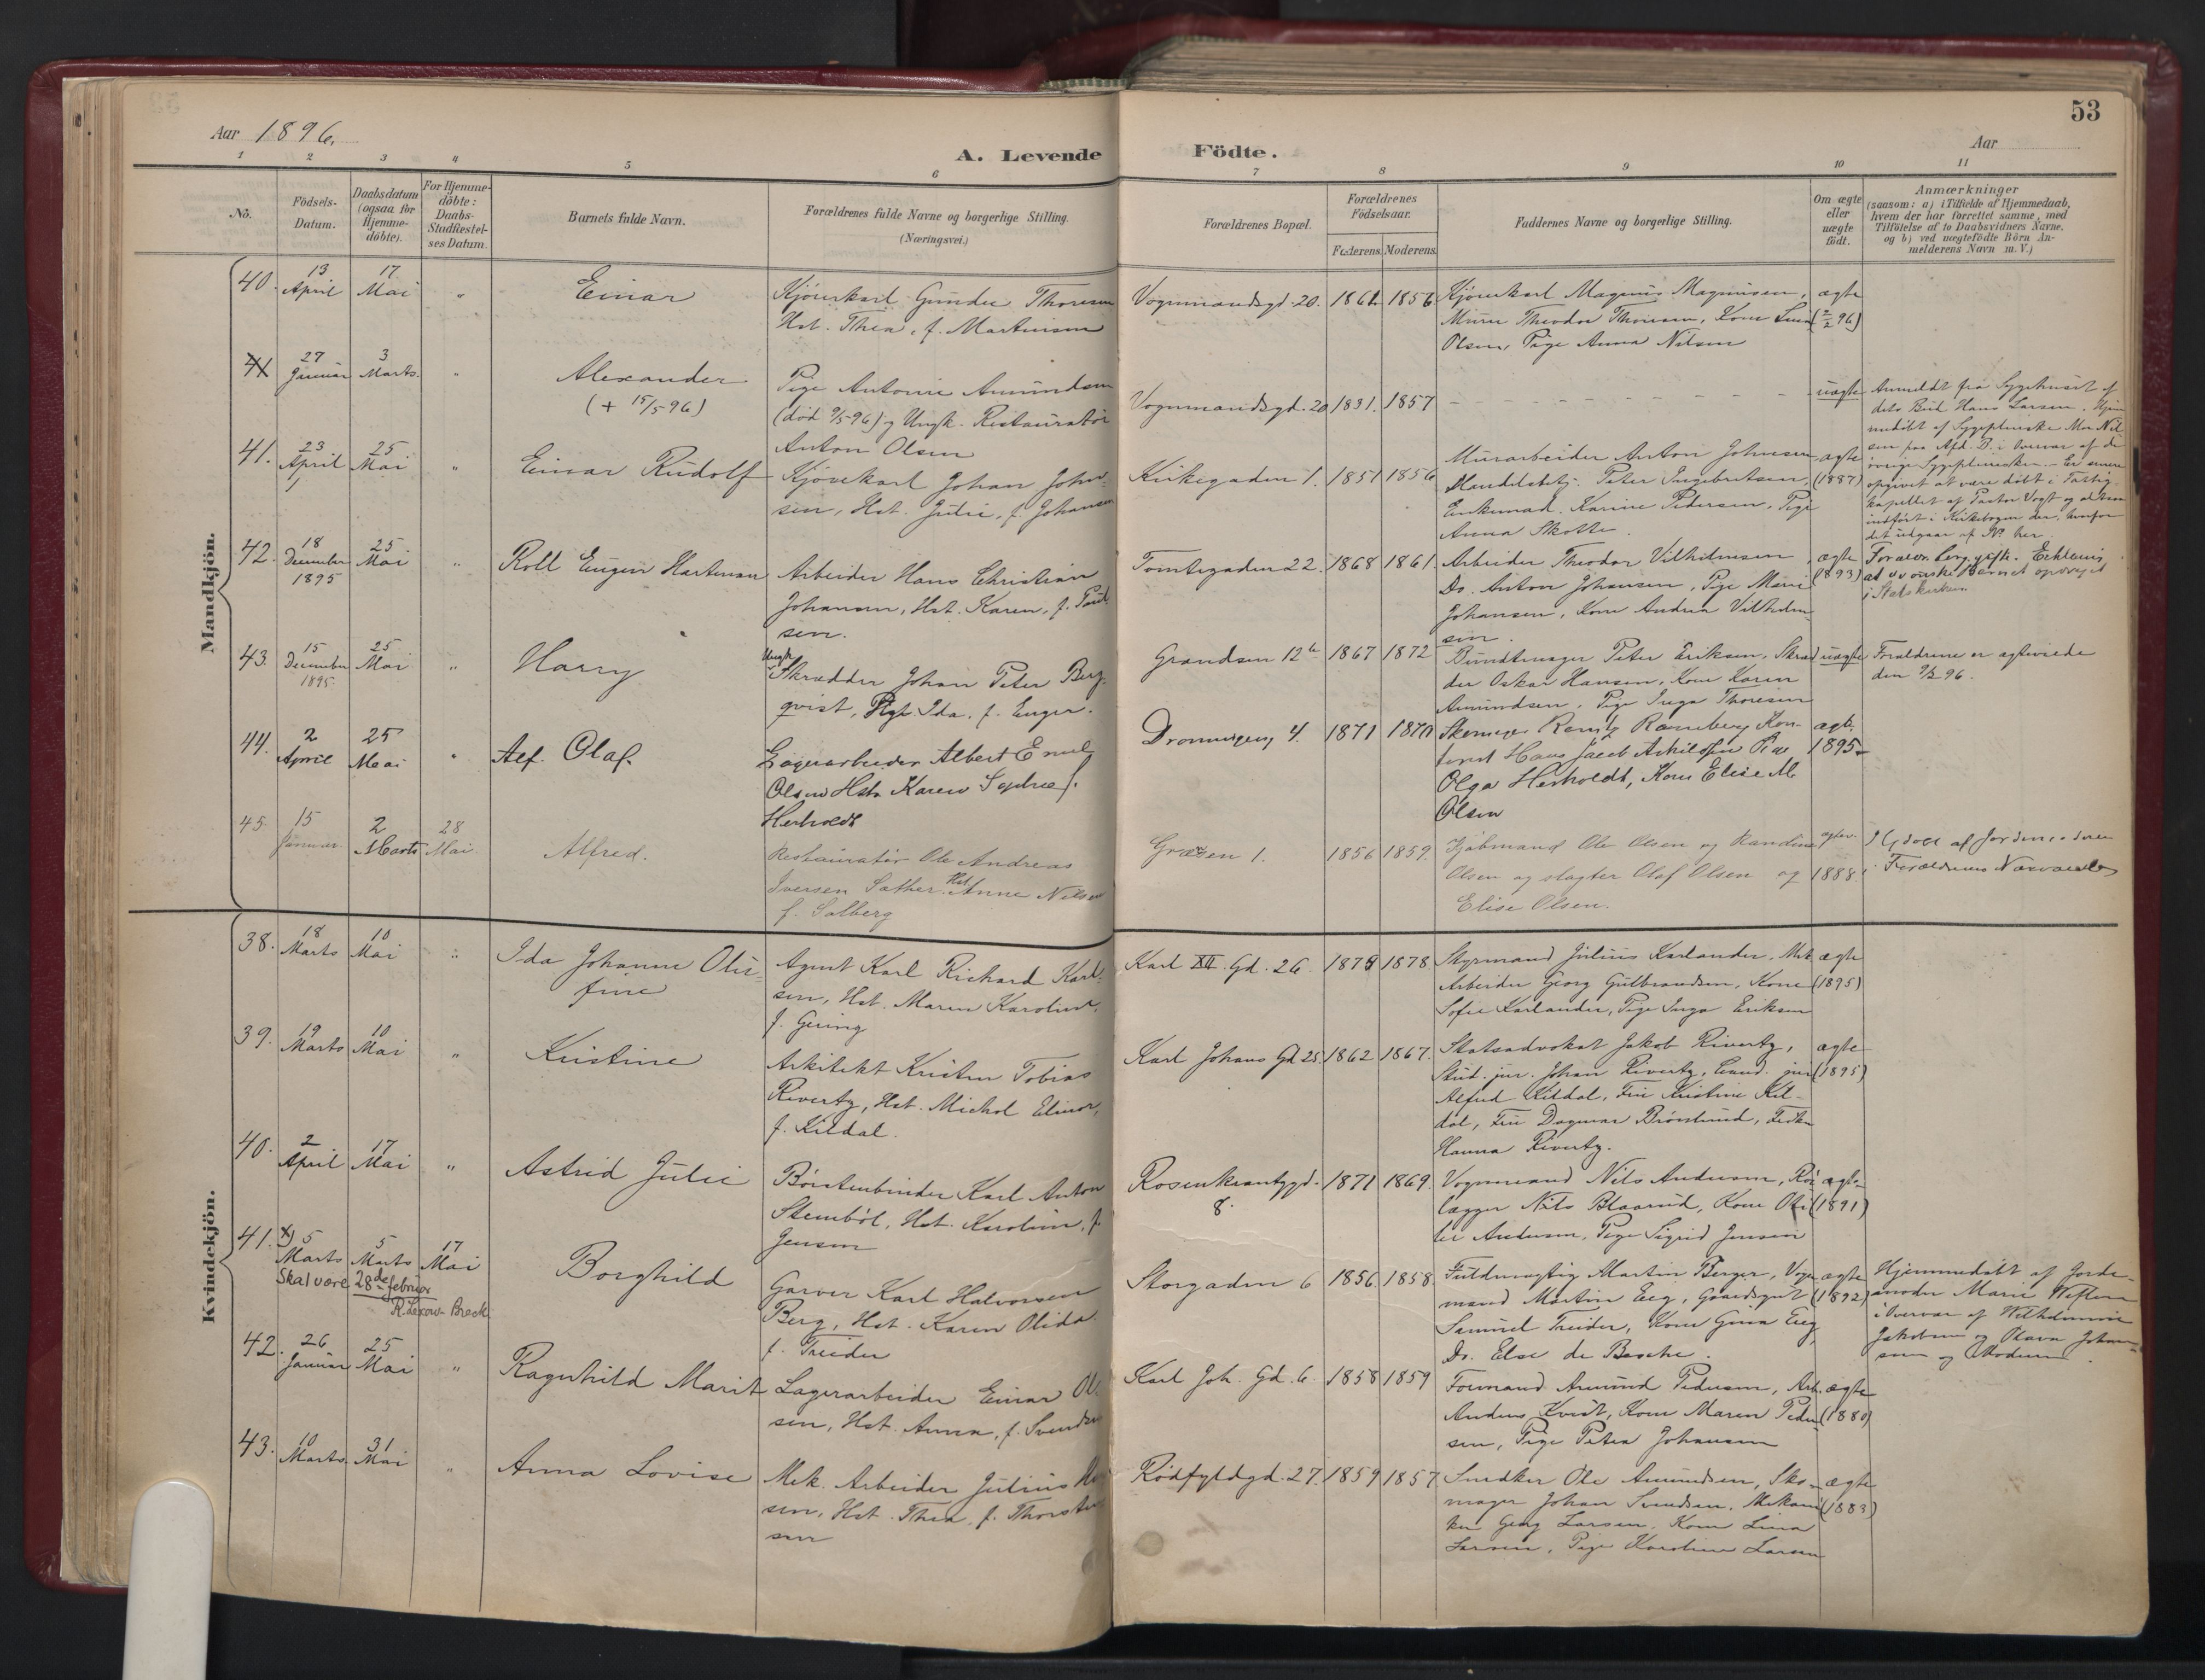 53
Aar 1896.
A. Levende Födte.
Aar
1 2 3 4 5 6 7 8 9 10 11
No.
Födsels-Datum.
Daabsdatum (ogsaa for Hjemme-döbte).
For Hjemme-döbte: Daabs-Stadfestel-ses Datum.
Barnets fulde Navn.
Forældrenes fulde Navne og borgerlige Stilling.
(Næringsvei.)
Forældrenes Bopæl.
Forældrenes Födselsaar.
Faderens. Moderens.
Faddernes Navne og borgerlige Stilling.
Om ægte eller uægte födt.
Anmærkninger
(saasom: a) i Tilfælde af Hjemmedaab, hvem der har forrettet samme, med Tilföielse af to Daabsvidners Navne. og b) ved uægtefödte Börn An-melderens Navn m. V.)
Mandkjön.
40. 13 April 17 Mai " Einar
Kjørekarl Gunder Thoresen
Hst. Thea, f. Martinsen
Vognmandsgd. 20. 1861 1856
Kjørekarl Magnus Magnusen,
Murer Theodor Thoresen, Kone Lina
Olsen, Pige Anna Nilsen
ægte
(2/2 96)
41 27 Januar 3 Marts. " Alexander
(+ 15/5 96)
Pige Antonie Amundsen
(død 9/5 96) og Ungk. Restauratør
Anton Olsen
Vognmandsgd. 20 1831. 1857
uægte
Anmeldt fra Sygehuset af
dets Bud Hans Larsen. Hjem
medøbt af Sygepleierske Nil
sen paa Afd. B. i Overvær af de
øvrige Sygepleiersker. Er senere
opgivet at være døbt i Fattig
kapellet af Pastor Vogt og
indført i Kirkebogen der, hvorfor
det udgaar af No her
41. 23 April 25 Mai " Einar Rudolf
Kjørekarl Johan John-
sen, Hst. Julie, f. Johansen
Kirkegaden 1. 1851 1856
Murarbeider Anton Johnsen
Handelsbetj. Peter Ingebretsen,
Enkemad. Karine Pedersen, Pige
Anna Skotte
ægte
(1887)
42. 18 December 1895 25 Mai " Rolf Eugen Hartman
Arbeider Hans Christian
Johansen, Hst. Karen, f. Paul
sen.
Tomtegaden 22. 1868 1861.
Arbeider Theodor Vilhelmsen,
Do. Anton Johansen, Pige Marie
Johansen, Kone Andrea Vilhelm
sen.
ægte
(1893)
Foræld. borg. gift. Erklæring
at ønske Barnet opdraget
i Statskirken
43. 15 December 1895. 25 Mai " Harry
Ungk
Skrædder Johan Peter Berg-
qvist, Pige Ida, f. Enger.
Grændsen 12b 1867 1872
Bundtmager Peter Eriksen, Skræd
der Oskar Hansen, Kone Karen
Amundsen, Pige Inga Thoresen
uægte
Forældrene er ægteviede
den 96.
44. 2 April 25 Mai " Alf. Olaf.
Lagerarbeider Albert Emil
Olsen Hst. Karen Sophie f.
Herholdt
Dronningeng 4. 1871 1870
Hans Jacob Askildsen
Olga Herholdt, Kone Elise M.
Olsen
ægte
1895
45. 15 Januar. 2 Marts 28 Mai Alfred.
Restauratør Ole Andreas
Iversen Sæther. Hst. Anne Nilsen
f. Solberg
Græsen 1. 1856 1859.
Kjøbmand Ole Olsen og Randine
Olsen og slagter Olaf Olsen og
Elise Olsen.
1888.
af Jordemoderen
i Forældrenes Nærværelse
Kvindekjön.
38. 18 Marts 10 Mai " Ida Johanne Oli-
fine
Agent Karl Richard Karl-
sen, Hst. Maren Karoline,
f. Gjering
Karl XII. Gd. 26 1875 1878.
Styrmand Julius Karlander, Mek
Arbeider Georg Gulbrandsen, Kone
Sofie Karlander, Pige Inga Eriksen
ægte
(1895)
39. 19 Marts 10 Mai " Kristine
Arkitekt Kristen Tobias
Rivertz, Hst. Michol Elinor,
f. Kildal.
Karl Johans Gd. 25. 1862 1867.
Statsadvokat Jakob Rivertz,
Stud. jur. Johan Rivertz, Cand. jur
Alfred Kildal, Fru Kristine Kil-
dal, Fru Dagmar Brønlund, Frøken
Hanna Rivertz.
ægte
(1895)
40. 2 April 17 Mai " Astrid Julie
Børstenbinder Karl Anton
Stenbøl, Hst. Karoline, f.
Jensen
Rosenkrantzgd. 8. 1871 1869.
Vognmand Nils Andersen, Rør
lægger Nils Blaarud, Kone Oti
lie Andersen, Pige Sigrid Jensen
ægte
(1891)
41. x) 5 Marts 5 Marts 17 Mai Borghild
Skal være 28de februar
R. Lexow-Breck.
Garver Karl Halvorsen
Berg, Hst. Karen Olida
f. Treider
Storgaden 6 1856. 1858.
Fuldmægtig Martin Berger, Vogn
mand Martin Eeg, Gaardsgut
Samuel Treider, Kone Gina Eeg,
Do. Else de Besche.
ægte
(1892)
Hjemmedøbt af Jorde-
moder Marie
i Overvær af Wilhelmine
Jakobsen og Olava Johan-
sen og Moderen.
42. 26 Januar 25 Mai " Ragnhild Marit
Lagerarbeider Einar Ol
sen, Hst. Anna, f. Svendsen
Karl Joh. Gd. 6. 1858 1859
Formand Amund Pedersen, Arb.
Anders Kvist, Kone Maren Peder
sen, Pige Petra Johansen
ægte
(1880)
43. 10 Marts 31 Mai " Anna Lovise
Mek. Arbeider Julius
sen, Hst. Thea, f. Thorsten
sen
Rødfyldgd. 27. 1859 1857
Snedker Ole Amundsen, Sko-
mager Johan Svendsen, Mekani
ker Georg Larsen, Kone Lina
Larsen, Pige Karoline Larsen
ægte
(1883)